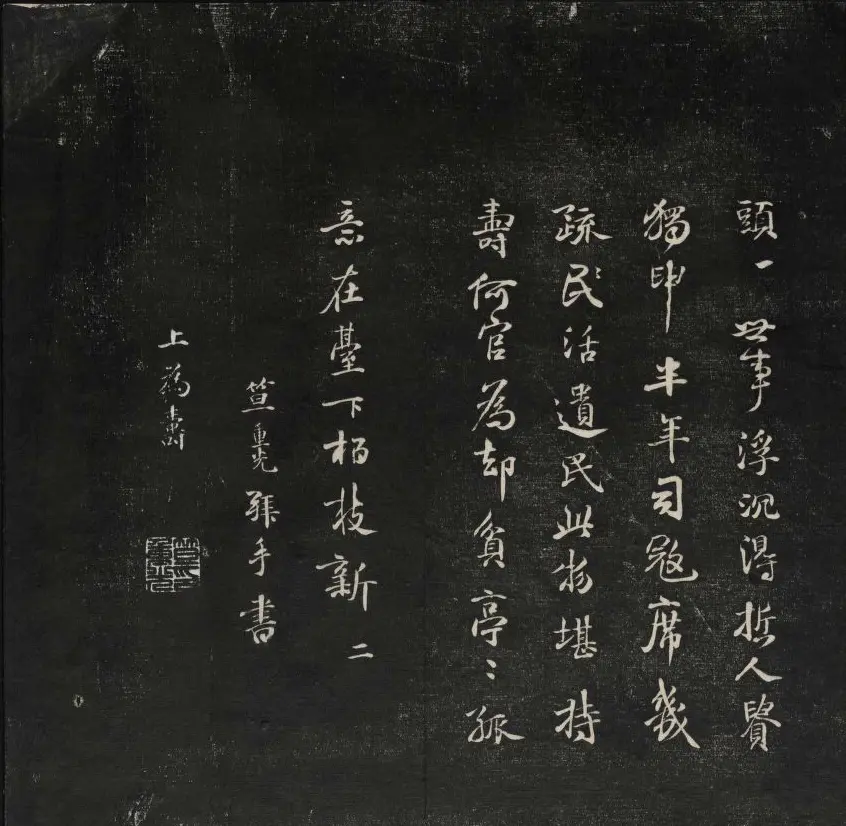 頭一 世事浮沉得哲人賢
獨申半年司寇席幾
疏民活遺民此物堪持
壽何官為却貧亭〻孤
意在臺下柏枝新 二
笪重光拜手書
上為壽